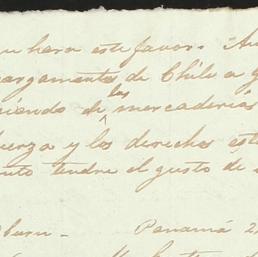 hara este favor. Au
argamento de Chile a
iendo de los mercaderias
uerza y los derechos est
nto tendre el gusto de
burn - Panamá 2